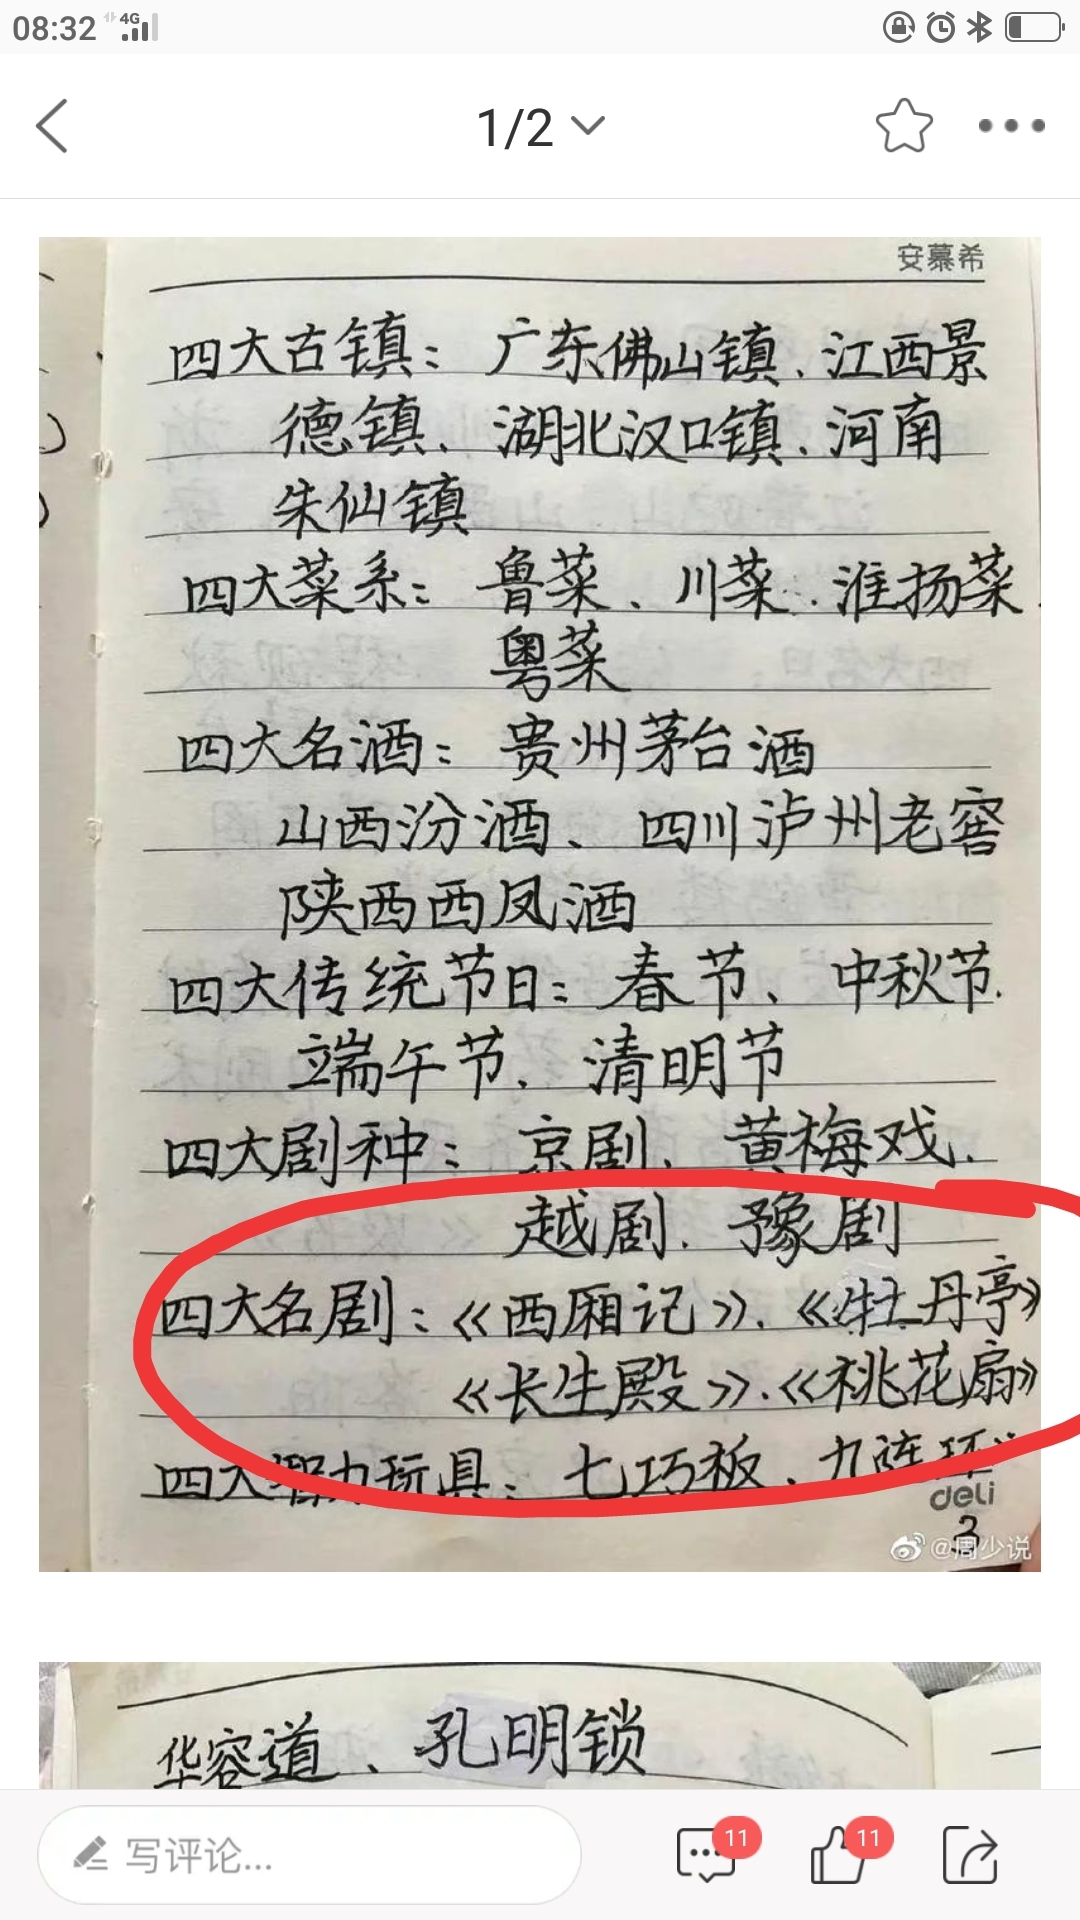 08:32 4G
1/2
安慕希
四大古镇：广东佛山镇、江西景
德镇、湖北汉口镇、河南
朱仙镇
四大菜系：鲁菜、川菜、淮扬菜、
粤菜
四大名酒：贵州茅台酒
山西汾酒、四川泸州老窖
陕西西凤酒
四大传统节日：春节、中秋节、
端午节、清明节
四大剧种：京剧、黄梅戏、
越剧、豫剧
四大名剧：《西厢记》、《牡丹亭》
《长生殿》、《桃花扇》
四大智力玩具：七巧板、九连环、
deli
3
@周少说
华容道、孔明锁
写评论...
11
11